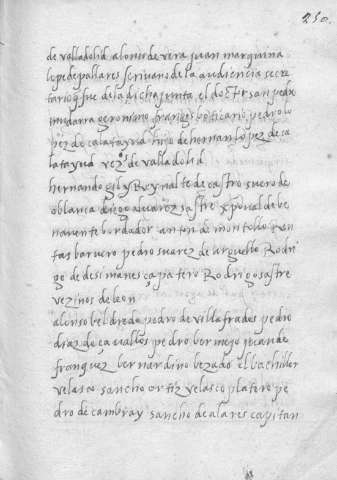 250.
de valladolid alonso de vera juan marquina
lope de pallares scrivano de la audiencia secre
tario q fue de la dicha junta el doctor san pedro
mudarra geronimo frances boticario pedro lo
pez de calatayud hijo de hernan lopez de ca
latayud vezos de valladolid
hernando gil y Reynalte de castro suero de
oblanca diego alvarez sastre xpoual de be
navente bordador anton de montollo
barvero pedro suarez de arguello Rodri
go de desimanes çapatero Rodrigo sastre
vezinos de leon
alonso beldredo pedro de villafrades pedro
diaz de cavallos pedro bermejo juan de
franquez bernardino bezado el bachiller
velasco sancho ortiz velasco platero pe
dro de cambray sancho de alares capitan